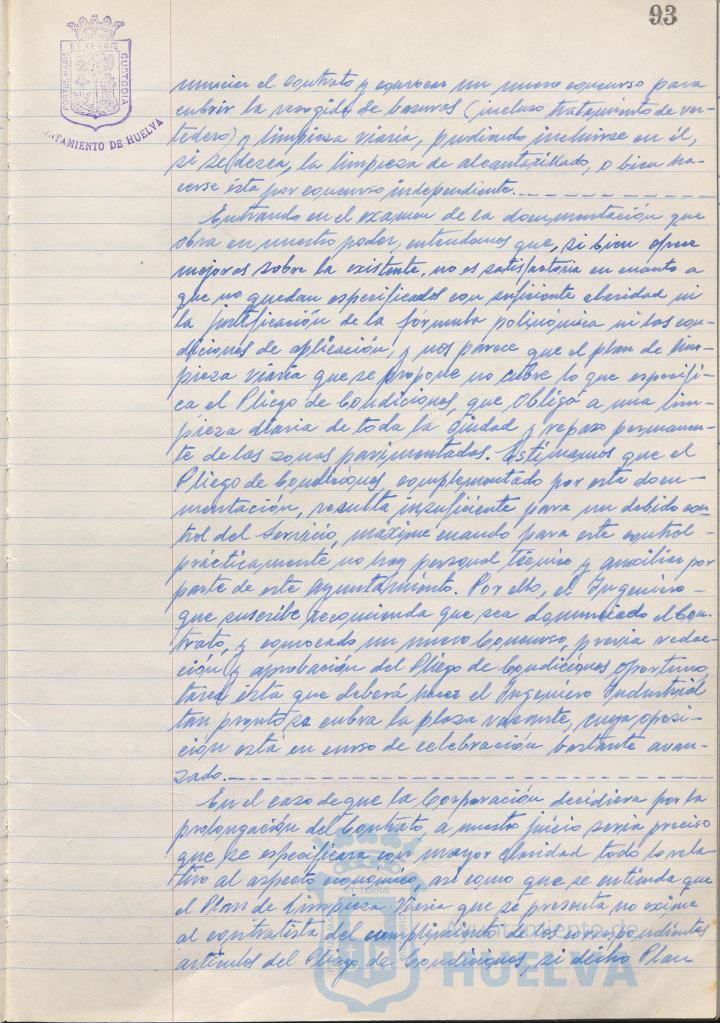 93
PORTUS MARIS ET TERRÆ CUSTODIA
AYUNTAMIENTO DE HUELVA
nunciar el contrato y convocar un nuevo concurso para
cubrir la recogida de basuras (incluso tratamiento de ver-
tedero) y limpieza viaria, pudiendo incluirse en él,
si se desea, la limpieza de alcantarillado, o bien ha-
cerse ésta por concurso independiente.
Entrando en el examen de la documentación que
obra en nuestro poder, entendemos que, si bien ofrece
mejoras sobre la existente, no es satisfactoria en cuanto a
que no quedan especificados con suficiente claridad ni
la justificación de la fórmula polinómica ni las con-
diciones de aplicación, y nos parece que el plan de lim-
pieza viaria que se propone no cubre lo que especifi-
ca el Pliego de Condiciones, que obliga a una lim-
pieza diaria de toda la ciudad y repaso permanen-
te de las zonas pavimentadas. Estimamos que el
Pliego de Condiciones, complementado por esta docu-
mentación, resulta insuficiente para un debido con-
trol del Servicio, máxime cuando para este control
prácticamente no hay personal técnico y auxiliar por
parte de este Ayuntamiento. Por ello, el Ingeniero
que suscribe recomienda que sea denunciado el Con-
trato, y convocado un nuevo Concurso, previa redac-
ción y aprobación del Pliego de Condiciones oportuno,
tarea ésta que deberá hacer el Ingeniero Industrial
tan pronto se cubra la plaza vacante, cuya oposi-
ción está en curso de celebración bastante avan-
zado.
En el caso de que la Corporación decidiera por la
prolongación del Contrato, a nuestro juicio sería preciso
que se especificara con mayor claridad todo lo rela-
tivo al aspecto económico, así como que se entienda que
el Plan de Limpieza Viaria que se presenta no exime
al contratista del cumplimiento de los correspondientes
artículos del Pliego de Condiciones, si dicho Plan
Ayuntamiento de
HUELVA